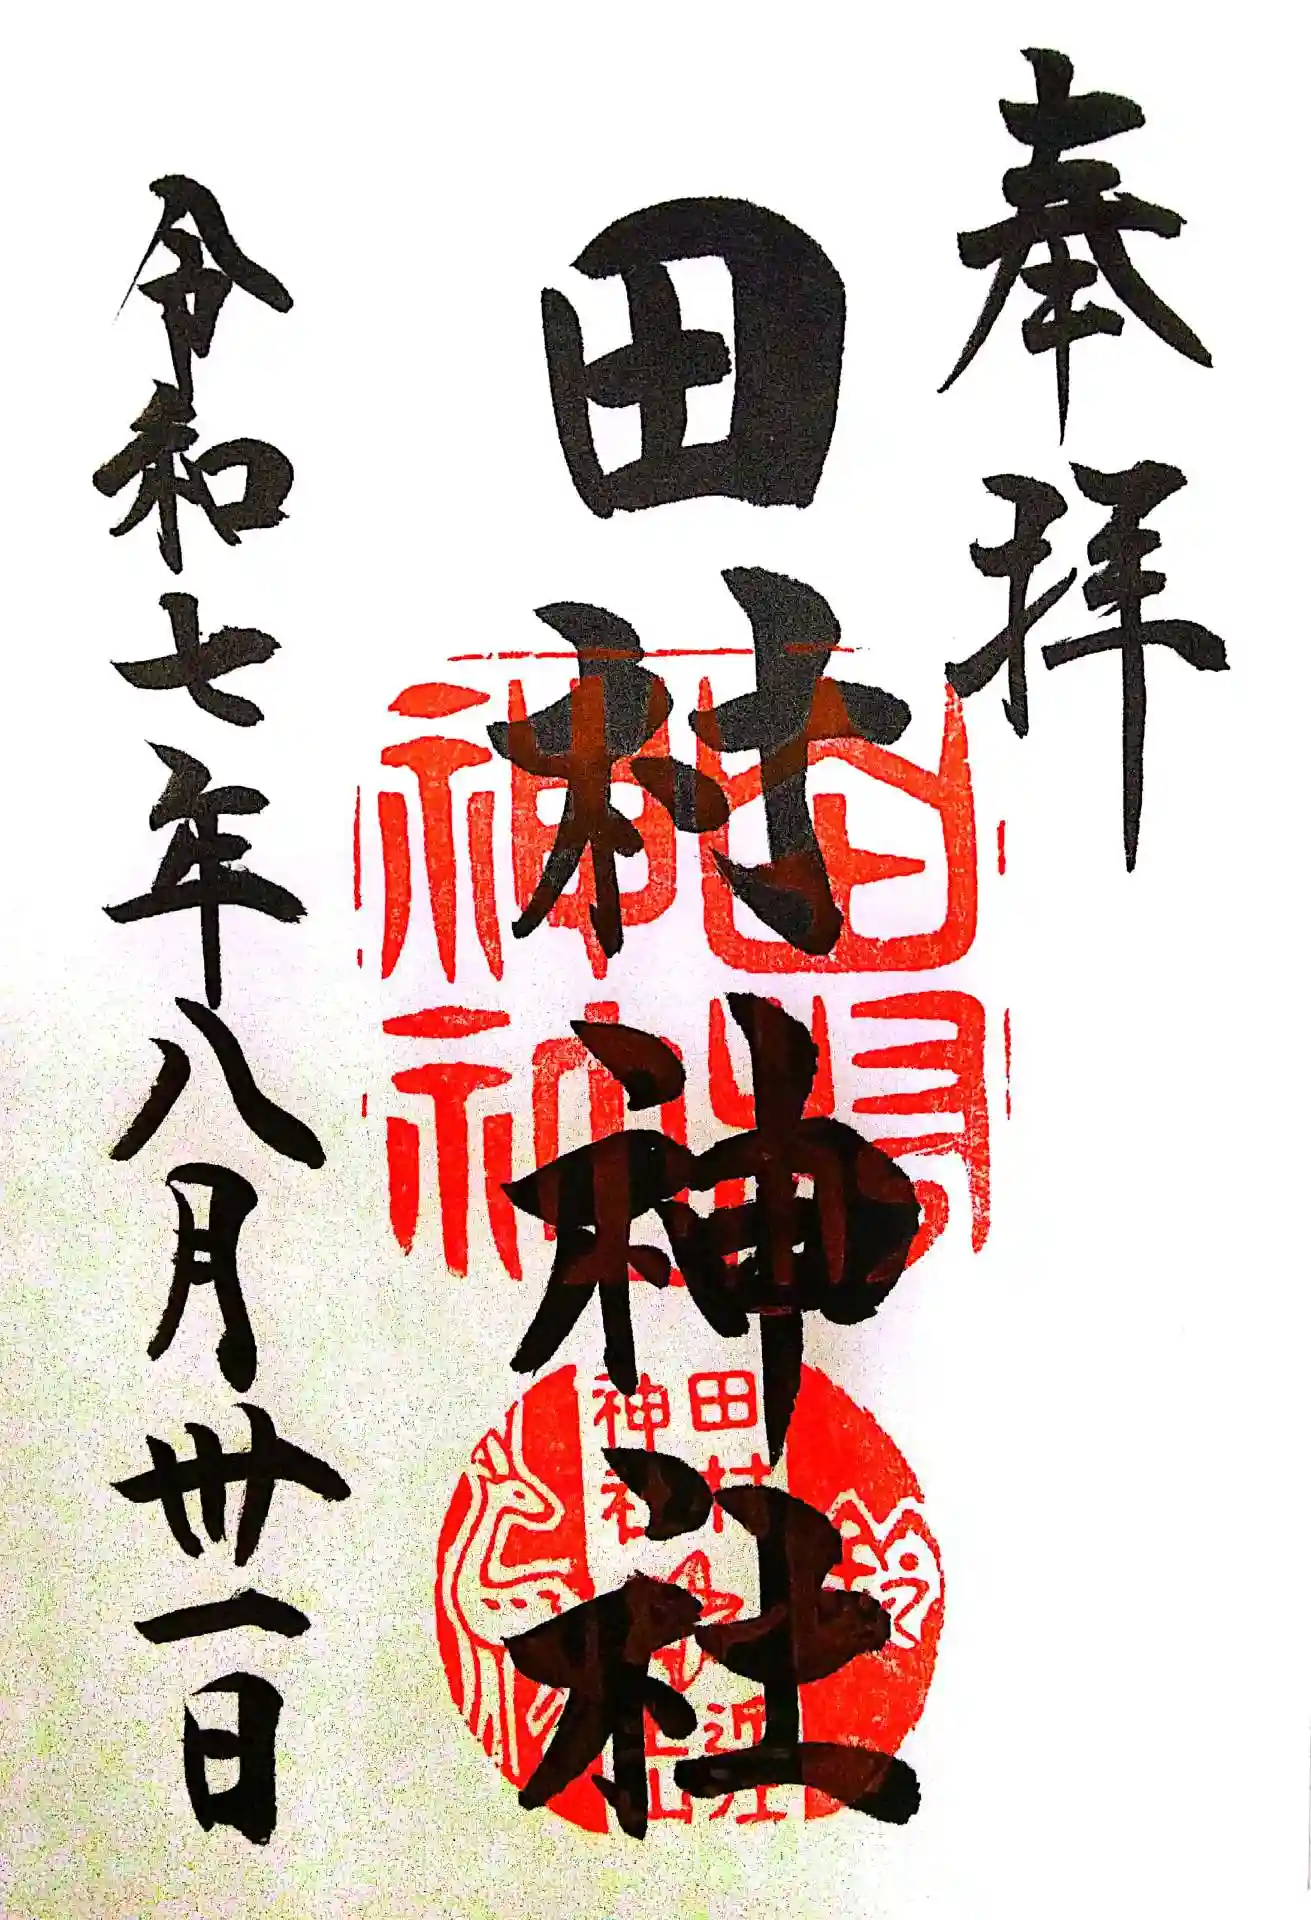 奉拝
田村神社
令和七年八月卅一日
田村
神社
田村
神社
近江
土山